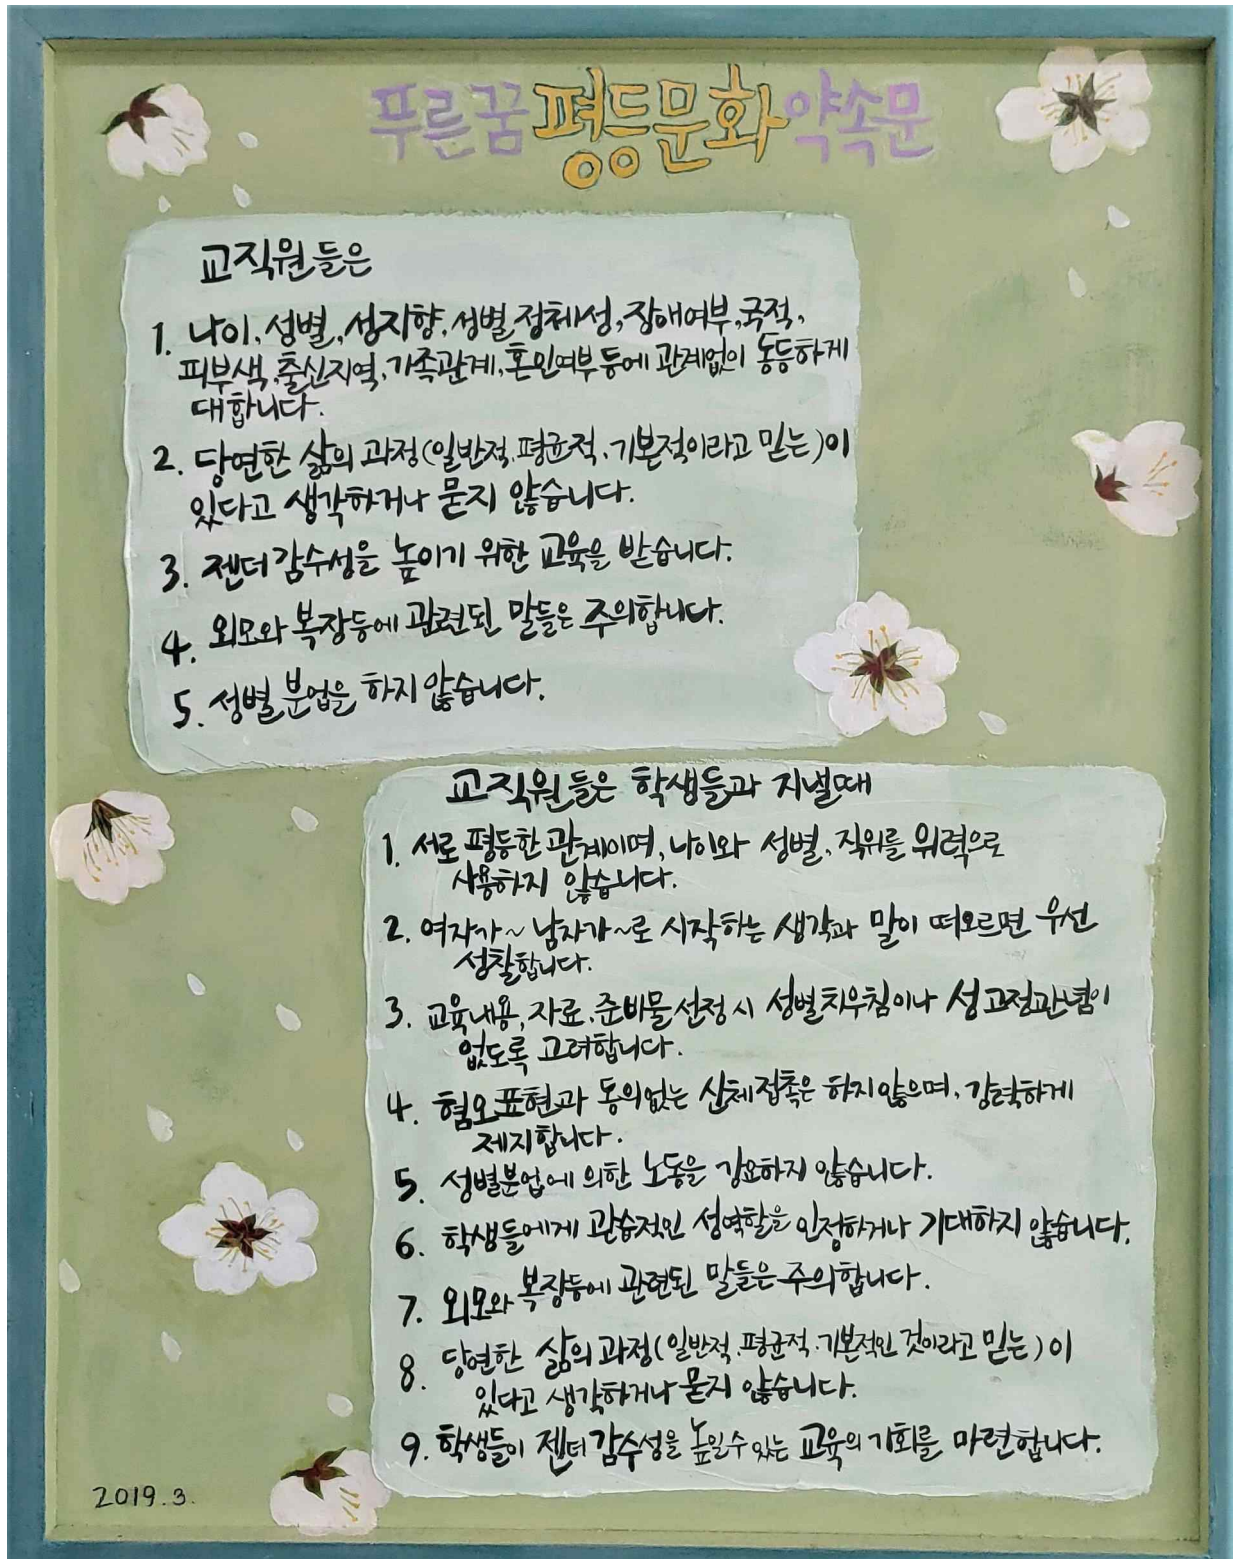 푸른꿈 평등문화 약속문
교직원들은
1. 나이, 성별, 성지향, 성별정체성, 장애여부, 국적,
피부색, 출신지역, 가족관계, 혼인여부 등에 관계없이 동등하게
대합니다.
2. 당연한 삶의 과정(일반적, 평균적, 기본적이라고 믿는)이
있다고 생각하거나 묻지 않습니다.
3. 젠더감수성을 높이기 위한 교육을 받습니다.
4. 외모와 복장등에 관련된 말들은 주의합니다.
5. 성별분업을 하지 않습니다.
교직원들은 학생들과 지낼때
1. 서로 평등한 관계이며, 나이와 성별, 직위를 위력으로
사용하지 않습니다.
2. 여자가~ 남자가~로 시작하는 생각과 말이 떠오르면 우선
성찰합니다.
3. 교육내용, 자료, 준비물 선정 시 성별치우침이나 성고정관념이
없도록 고려합니다.
4. 혐오표현과 동의없는 신체접촉은 하지않으며, 강력하게
제지합니다.
5. 성별분업에 의한 노동을 강요하지 않습니다.
6. 학생들에게 관습적인 성역할을 인정하거나 기대하지 않습니다.
7. 외모와 복장등에 관련된 말들은 주의합니다.
8. 당연한 삶의 과정(일반적, 평균적, 기본적인 것이라고 믿는)이
있다고 생각하거나 묻지 않습니다.
9. 학생들이 젠더감수성을 높일수 있는 교육의 기회를 마련합니다.
2019.3.